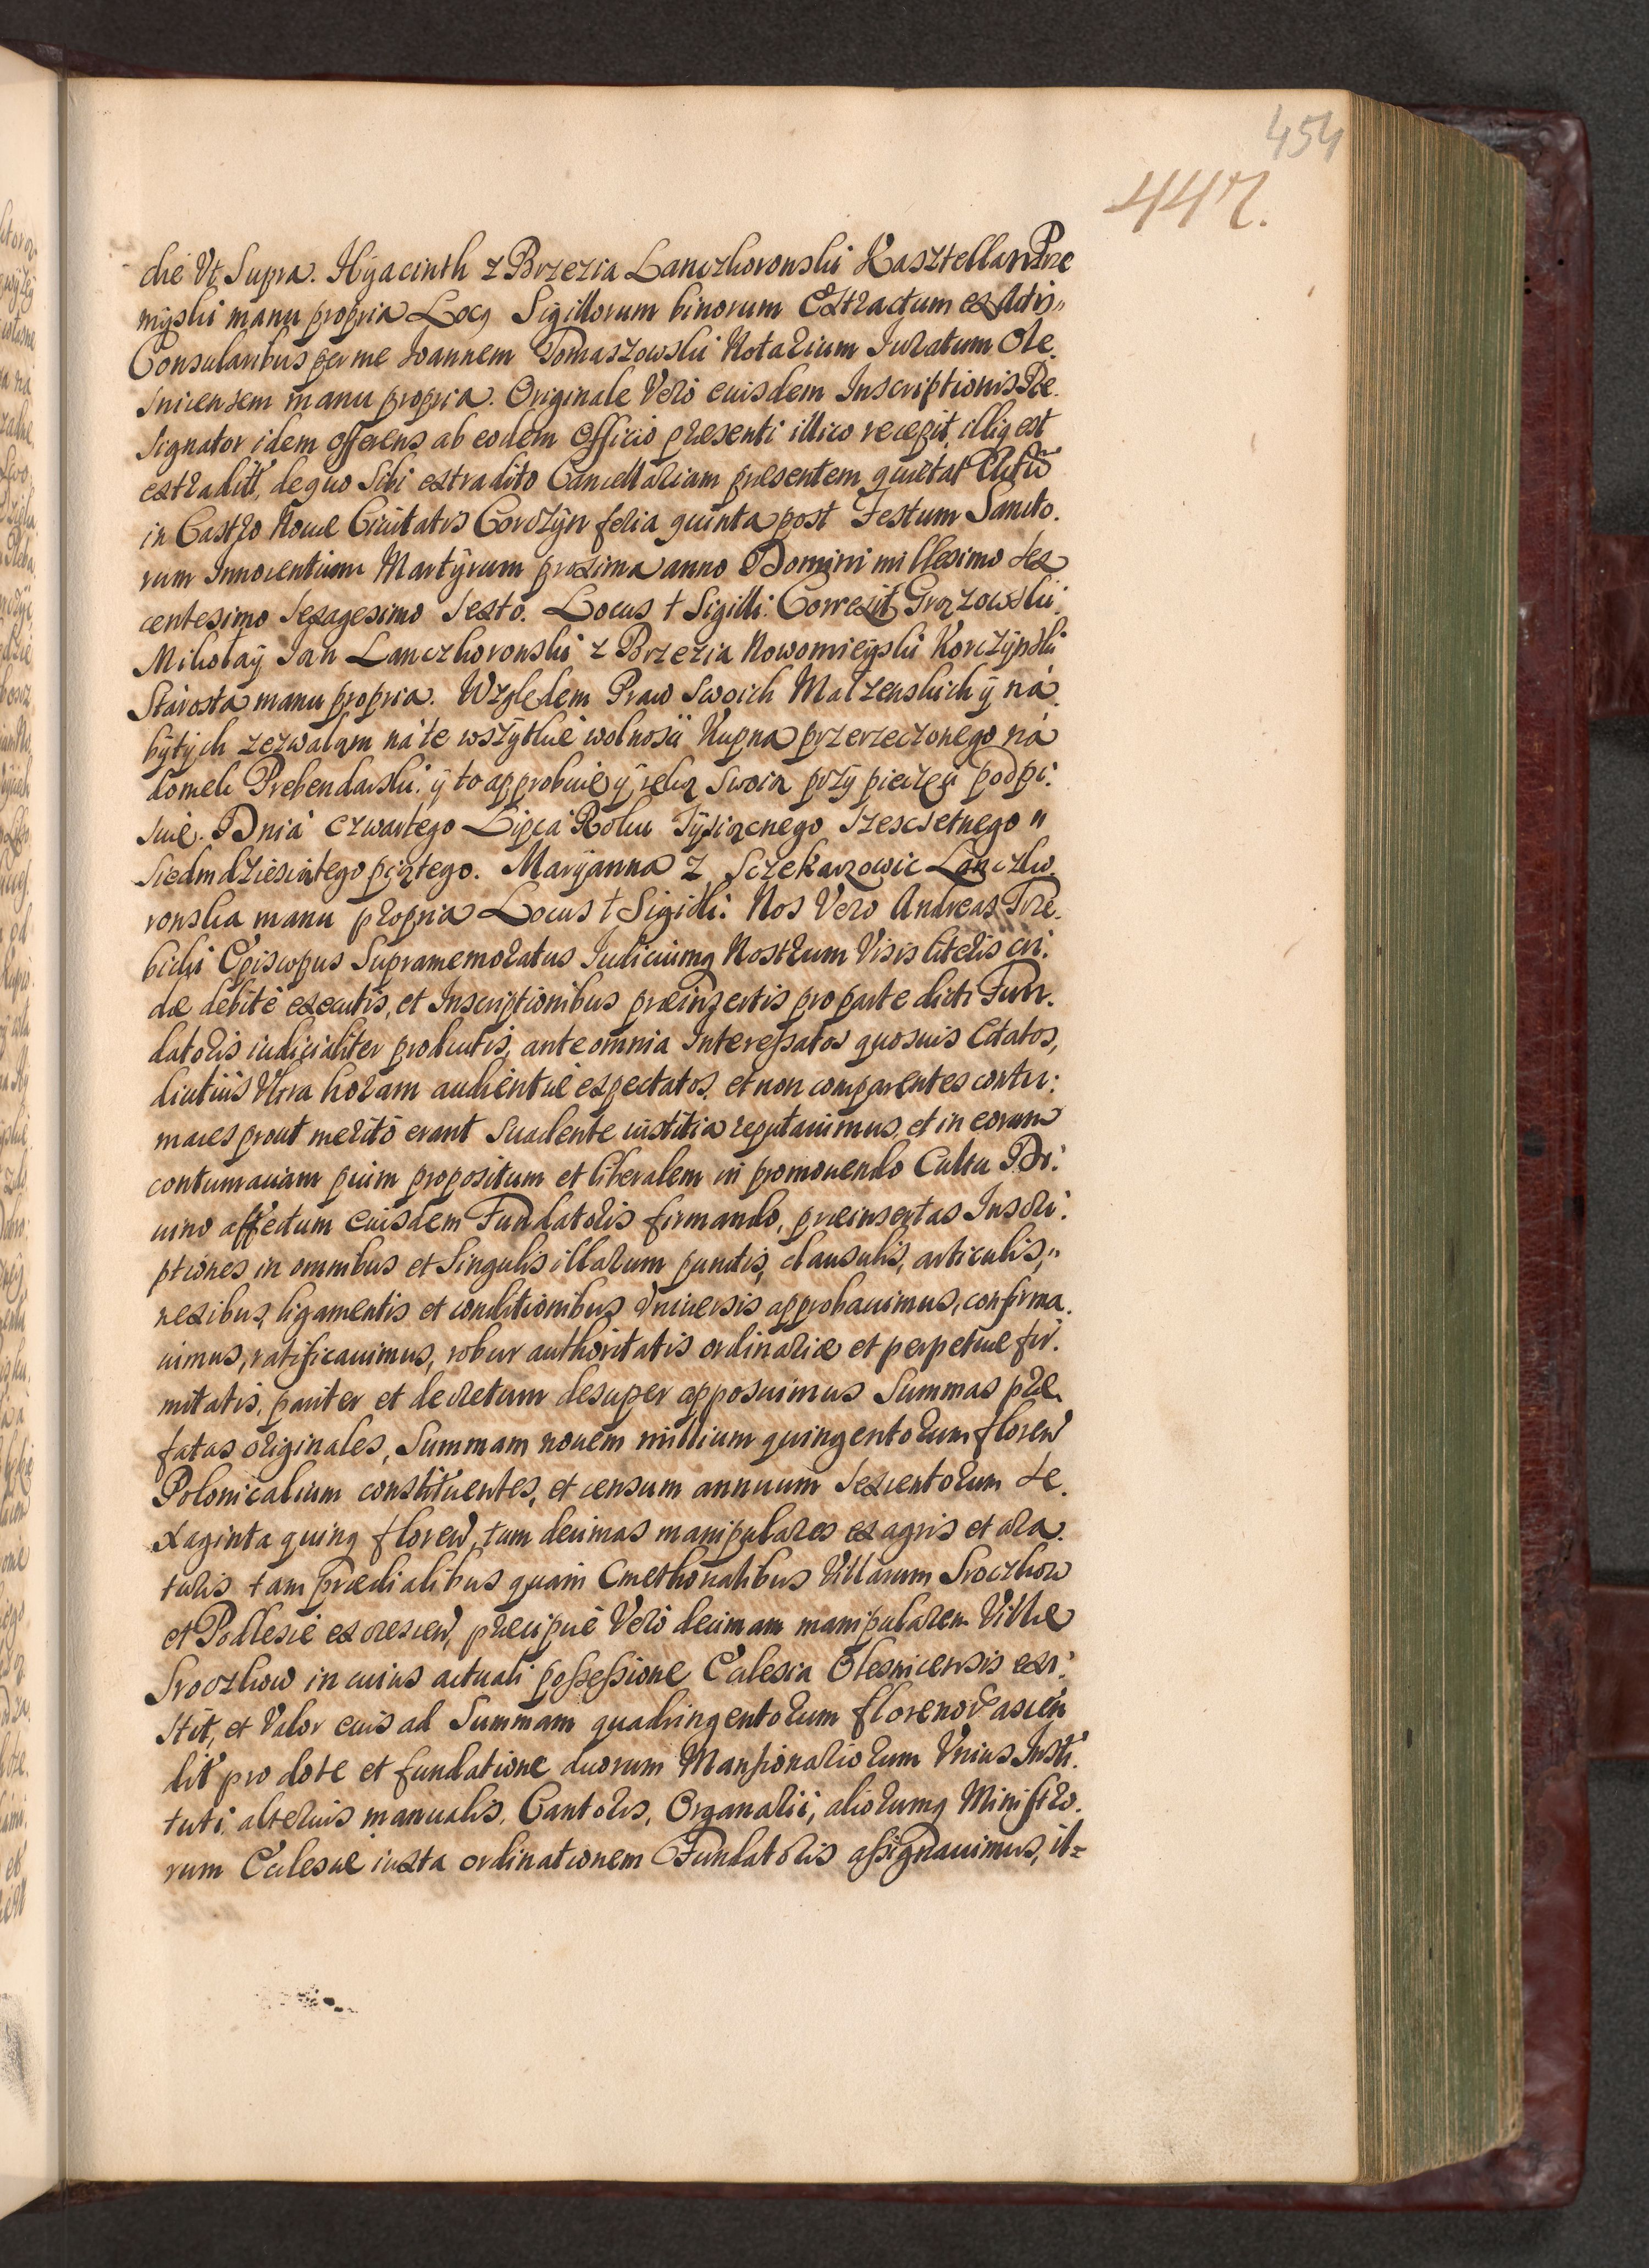 454
447.
die Vt Supra. Hyacinth z Brzezia Lanczkoronski Kasztellan Prze
myski manu propria Locq Sigillorum binorum Extractum ex Actis
Consularibus per me Joannem Tomaszowski Notarium Juratum Ole.
snicensem manu propria. Originale Vero euisdem Inscriptionis Re.
signator idem offerens ab eodem Officio præsenti illico recepit, illiq est
extraditt, de quo Sibi extradito Cancellariam præsentem quietat Actũ
in Castro Nouæ Ciuitatis Corczyn feria quinta post Festum Sancto.
rum Innocentium Martyrum proxima anno Domini millesimo sex
centesimo Sexagesimo Sexto. Locus † Sigilli. Correxit Grozowski.
Mikołaÿ Jan Lanczkoronski z Brzezia Nowomieÿski Korczÿnski
Stárosta manu propria. Wzgledem Praw Swoich Małzenskich ÿ ná
bytych zezwalam ná te wszÿtkie wolnosci Kupna przerzeczonego ná
domek Prebendarski. ÿ to approbuie ÿ ręką Swoią przy pieczęci podpi:
suię. Dnia czwartego Lipca Roku Tysiącnego Szescsetnego
Siedmdziesiątego piątego. Maryanna z Sczekarzowic Lanczko.
ronska manu propria Locus † Sigilli. Nos Vero Andreas Trze.
bicki Episcopus Supramemoratus Iudiciumq Nostrum Visis literis cri:
dæ debitè executis, et Inscriptionibus præinsertis pro parte dicti Fun.
datoris iudicialiter productis, ante omnia Interessatos quosuis Citatos,
diutius Vltra horam audientiæ expectatos, et non comparentes contu:
maces prout meritò erant Suadente iustitia reputauimus, et in eorum
contumaciam pium propositum et liberalem in promouendo Cultu Di:
uino affectum euisdem Fundatoris firmando, præinsertas Inscri:
ptiones in omnibus et Singulis illarum punctis, clausulis, articulis,
nexibus, ligamentis et conditionibus Vniuersis approbauimus, confirma.
uimus, ratificauimus, robur authoritatis ordinariæ et perpetuæ fir.
mitatis, pariter et decretum desuper apposuimus Summas præ.
fatas originales, Summam nouem millium quingentorum floren
Polonicalium constituentes, et censum annuum Sexcentorum Se.
xaginta quinq floren, tum decimas manipulares ex agris et ara.
turis tam prædialibus quam Cmethonalibus Villarum Sroczkow
et Podlesie excrescen, præcipuè Verò decimam manipularem Villæ
Sroczkow in cuius actuali possessione Ecclesia Olesnicensis exi:
stit, et Valor euis ad Summam quadringentorum florenor ascen
dit pro dote et fundatione duorum Mansionariorum Vnius Insti.
tuti, alterius manualis, Cantoris, Organarii, aliorumq Ministro.
rum Ecclesiæ iuxta ordinationem Fundatoris assignauimus, it=